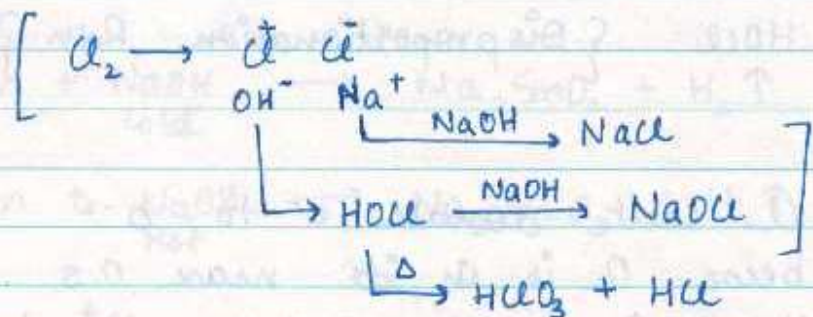 [ Cl₂ → Cl⁺ Cl⁻
OH⁻ Na⁺
NaOH → NaCl
→ HOCl NaOH → NaOCl ]
Δ → HClO₃ + HCl